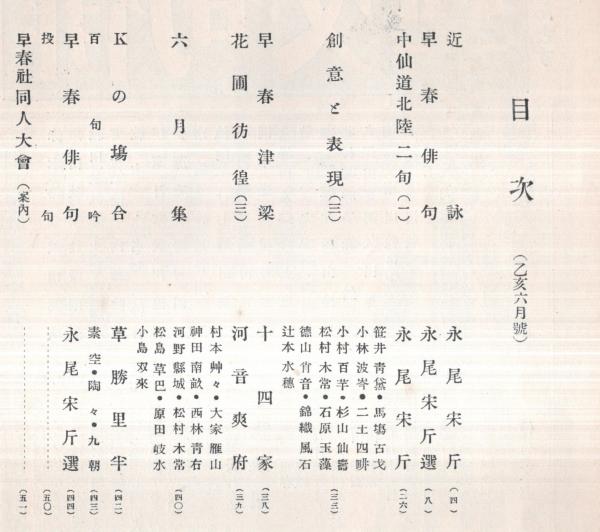 目次 (乙亥六月號)
近詠 永尾宋斤 (四)
早春俳句 永尾宋斤選 (八)
中仙道北陸二句 (一) 永尾宋斤 (二六)
笹井靑黛・馬塲古戈
小林波岑・二土四腓
創意と表現 (三) 小村百芋・杉山仙齋 (三三)
松村木常・石原玉藻
德山宵音・錦織風石
辻本水穗
早春津梁 十四家 (三八)
花圃彷徨 (三) 河音爽府 (三九)
村本艸々・大家雁山
神田南畝・西林靑右
六月集 河野縣城・松村木常 (四〇)
松島草巴・原田岐水
小島双來
Kの塲合 草勝里半 (四二)
百句吟 素空・陶々・九朝 (四三)
早春俳句 永尾宋斤選 (四四)
投句 (五〇)
早春社同人大會 (案內) (五一)